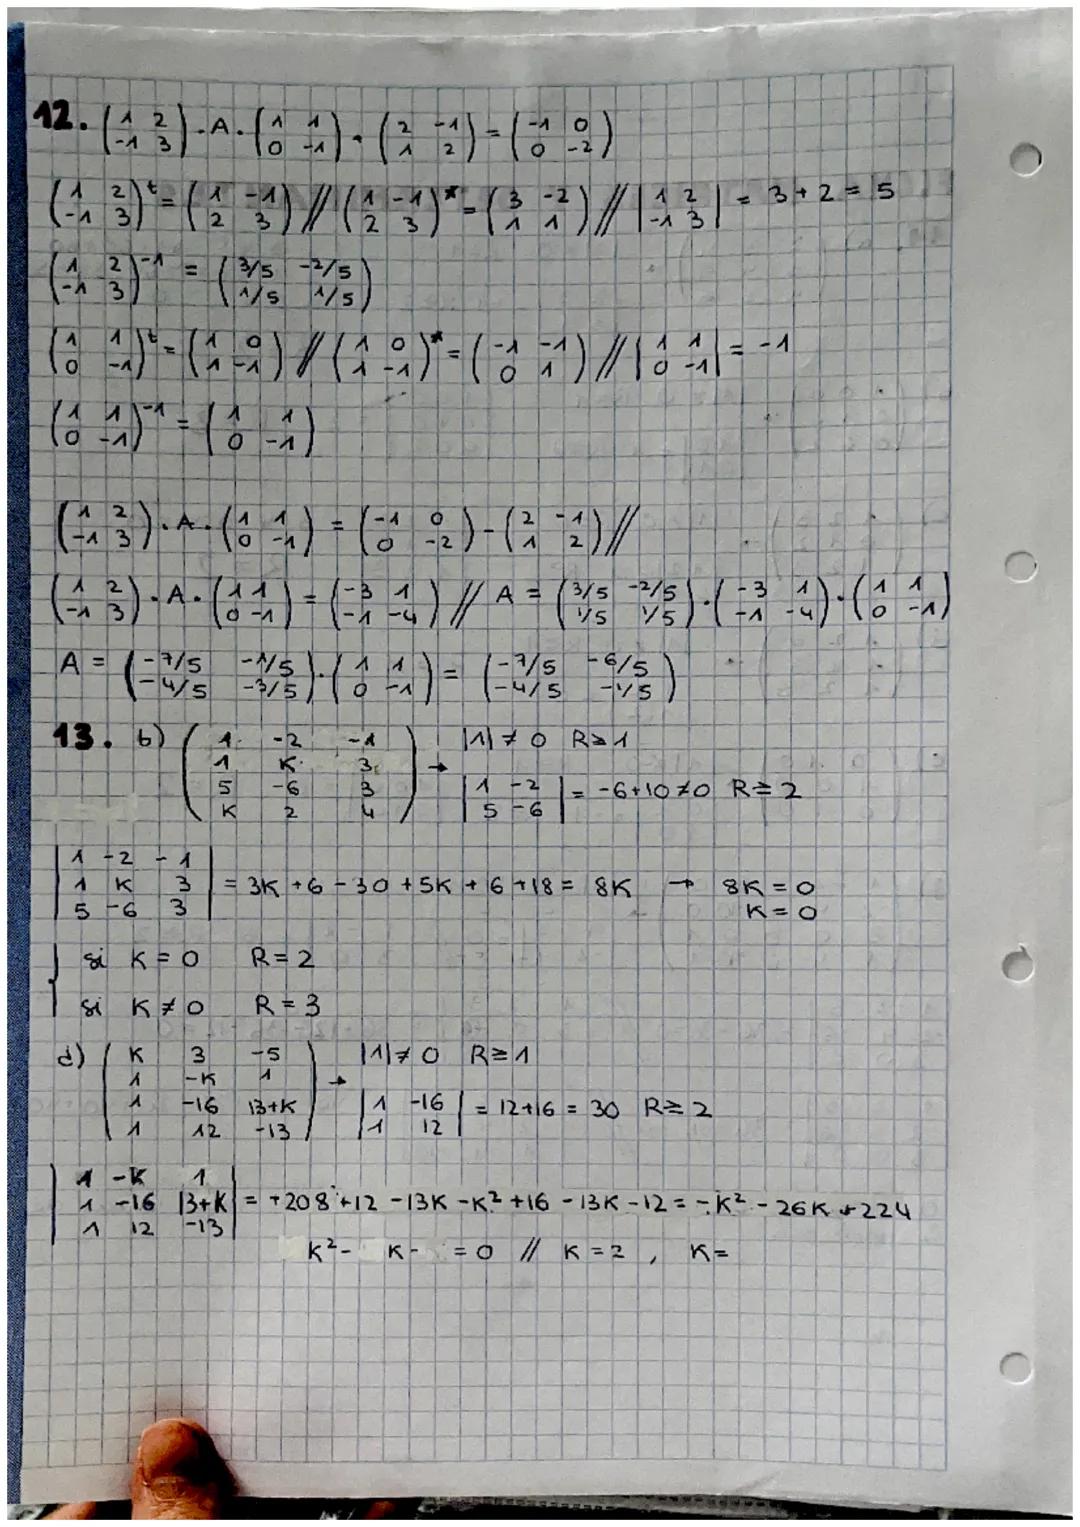 12. (1 2 ; -1 3) · A · (1 1 ; 0 -1) + (2 -1 ; 1 2) = (-1 0 ; 0 -2)
(1 2 ; -1 3)^t = (1 -1 ; 2 3) // (1 -1 ; 2 3)^* = (3 -2 ; 1 1) // |1 2 ; -1 3| = 3+2 = 5
(1 2 ; -1 3)^-1 = (3/5 -2/5 ; 1/5 1/5)
(1 1 ; 0 -1)^t = (1 0 ; 1 -1) // (1 0 ; 1 -1)^* = (-1 -1 ; 0 1) // |1 1 ; 0 -1| = -1
(1 1 ; 0 -1)^-1 = (1 1 ; 0 -1)
(1 2 ; -1 3) · A · (1 1 ; 0 -1) = (-1 0 ; 0 -2) - (2 -1 ; 1 2) //
(1 2 ; -1 3) · A · (1 1 ; 0 -1) = (-3 1 ; -1 -4) // A = (3/5 -2/5 ; 1/5 1/5) · (-3 1 ; -1 -4) · (1 1 ; 0 -1)
A = (-7/5 -1/5 ; -4/5 -3/5) · (1 1 ; 0 -1) = (-7/5 -6/5 ; -4/5 -1/5)
13. b) (1 -2 -1 ; 1 K 3 ; 5 -6 3 ; K 2 4) → |1| ≠ 0 R≥1
|1 -2 ; 5 -6| = -6+10 ≠ 0 R≥2
|1 -2 -1 ; 1 K 3 ; 5 -6 3| = 3K +6 -30 +5K +6 +18 = 8K → 8K = 0
K = 0
si K = 0 R = 2
si K ≠ 0 R = 3
d) (K 3 -5 ; 1 -K 1 ; 1 -16 13+K ; 1 12 -13) → |1| ≠ 0 R≥1
|1 -16 ; 1 12| = 12+16 = 30 R≥2
|1 -K 1 ; 1 -16 13+K ; 1 12 -13| = +208 +12 -13K -K² +16 -13K -12 = -K² -26K +224
K² - K - = 0 // K = 2 , K =